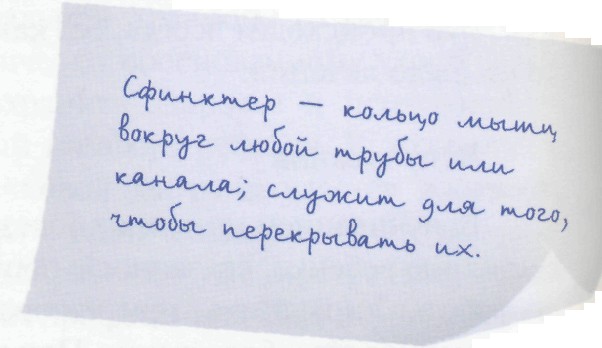 Сфинктер — кольцо мышц
вокруг любой трубы или
канала; служит для того,
чтобы перекрывать их.